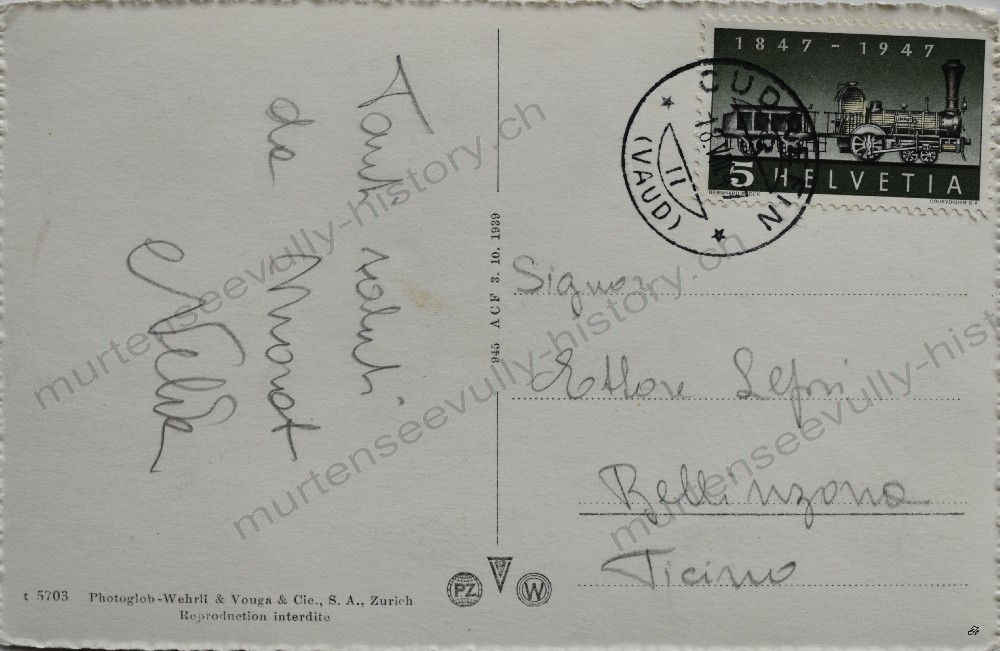 Tanti saluti
de Morat
Nelda
1847 - 1947
5 HELVETIA
COURVOISIER S.A.
CUDREFIN
(VAUD)
945 ACF 3. 10. 1939
Signor
Ettore
Bellinzona
Ticino
PZ
W
t 5703 Photoglob-Wehrli & Vouga & Cie., S. A., Zurich
Reproduction interdite
murtenseevully-history.ch
murtenseevully-history.ch
murtenseevully-history.ch